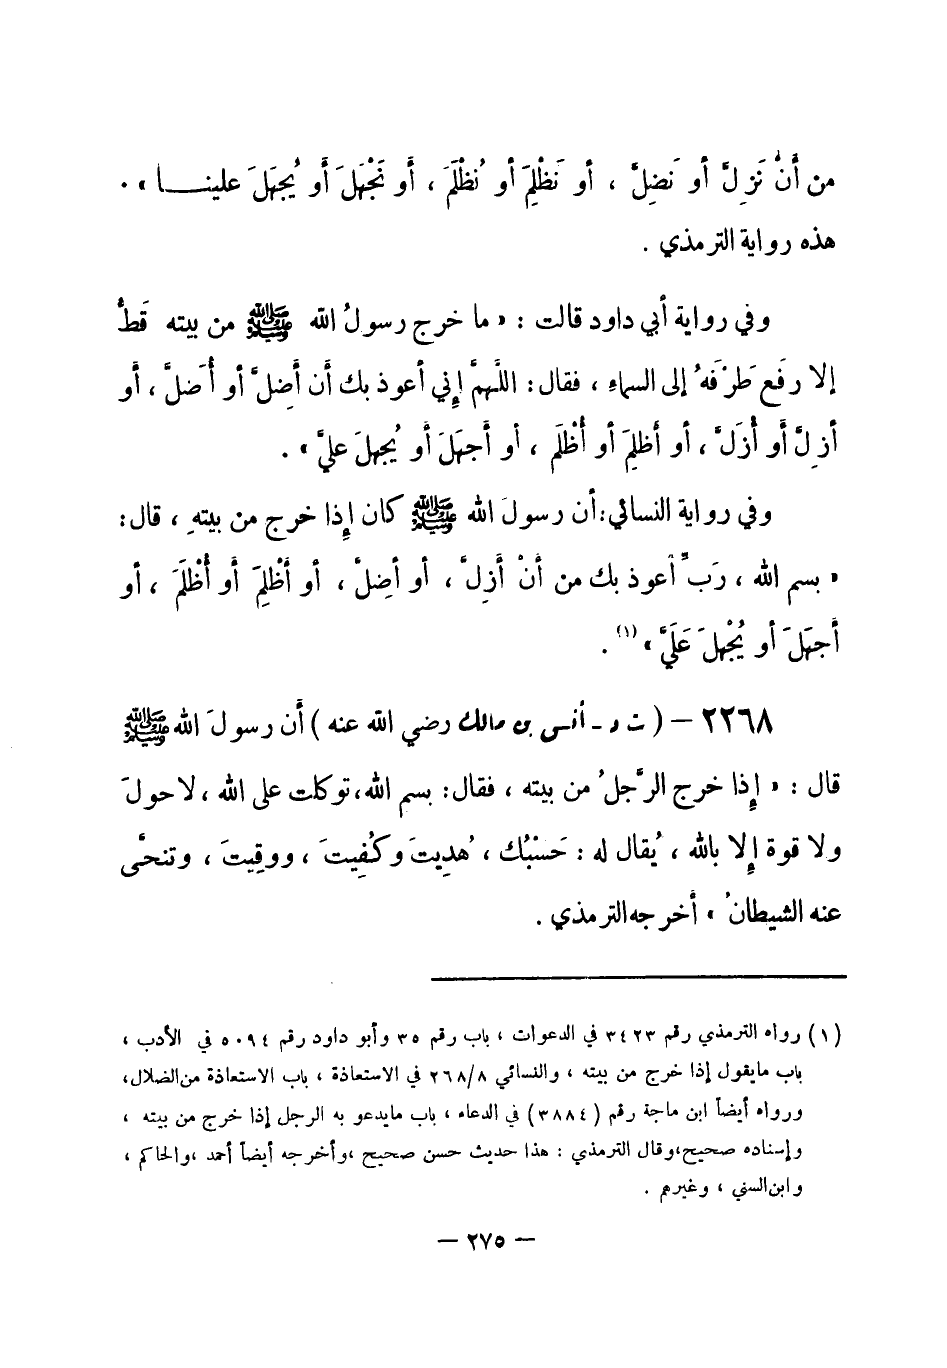 من أَنْ نَزِلَّ أو نَضِلَّ ، أو نَظْلِمَ أو نُظْلَمَ ، أَو نَجْهَلَ أَو يُجهَلَ علينـــا » .
هذه رواية الترمذي .
وفي رواية أبي داود قالت : « ما خرج رسولُ الله ﷺ من بيته قَطُّ
إلا رفَع طَرْفَهُ إلى السماء ، فقال : اللهمَّ إني أعوذ بك أن أَضِلَّ أو أُضلَّ ، أَو
أزِلَّ أَو أُزَلَّ ، أو أَظلِمَ أو أُظْلَم ، أو أَجهَلَ أَو يُجهلَ عليَّ » .
وفي رواية النسائي : أن رسولَ الله ﷺ كان إِذا خرج من بيتهِ ، قال :
« بسم الله ، رَبِّ أعوذ بك من أَنْ أَزِلَّ ، أو أضِلَّ ، أو أَظْلِمَ أَو أُظْلَمَ ، أو
أَجهَلَ أو يُجْهلَ عَلَيَّ » (١) .
٢٢٦٨ – ( ت د - أنس بن مالك رضي الله عنه ) أَن رسولَ الله ﷺ
قال : « إِذا خرج الرَّجلُ من بيته ، فقال : بسم الله ، توكلت على الله ، لا حولَ
ولا قوة إِلا بالله ، يُقال له : حَسْبُك ، هُدِيتَ وكُفِيتَ ، ووقِيتَ ، وتنحَّى
عنه الشيطانُ » أخرجه الترمذي .
(١) رواه الترمذي رقم ٣٤٢٣ في الدعوات ، باب رقم ٣٥ وأبو داود رقم ٥٠٩٤ في الأدب ،
باب ما يقول إذا خرج من بيته ، والنسائي ٢٦٨/٨ في الاستعاذة ، باب الاستعاذة من الضلال ،
ورواه أيضاً ابن ماجة رقم ( ٣٨٨٤ ) في الدعاء ، باب ما يدعو به الرجل إذا خرج من بيته ،
وإسناده صحيح ، وقال الترمذي : هذا حديث حسن صحيح ، وأخرجه أيضاً أحمد ، والحاكم ،
وابن السني ، وغيرهم .
– ٢٧٥ –